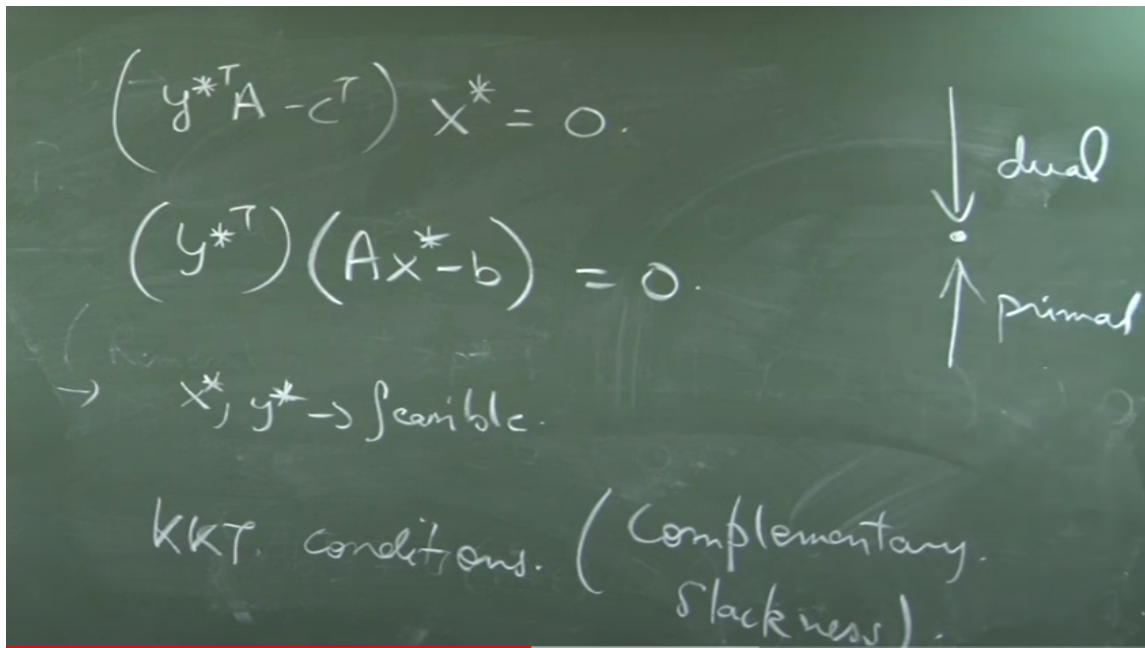 (y*ᵀA - cᵀ) x* = 0.
dual
(y*ᵀ)(Ax* - b) = 0.
primal
→ x*, y* → feasible.
KKT. conditions. (Complementary.
Slackness).